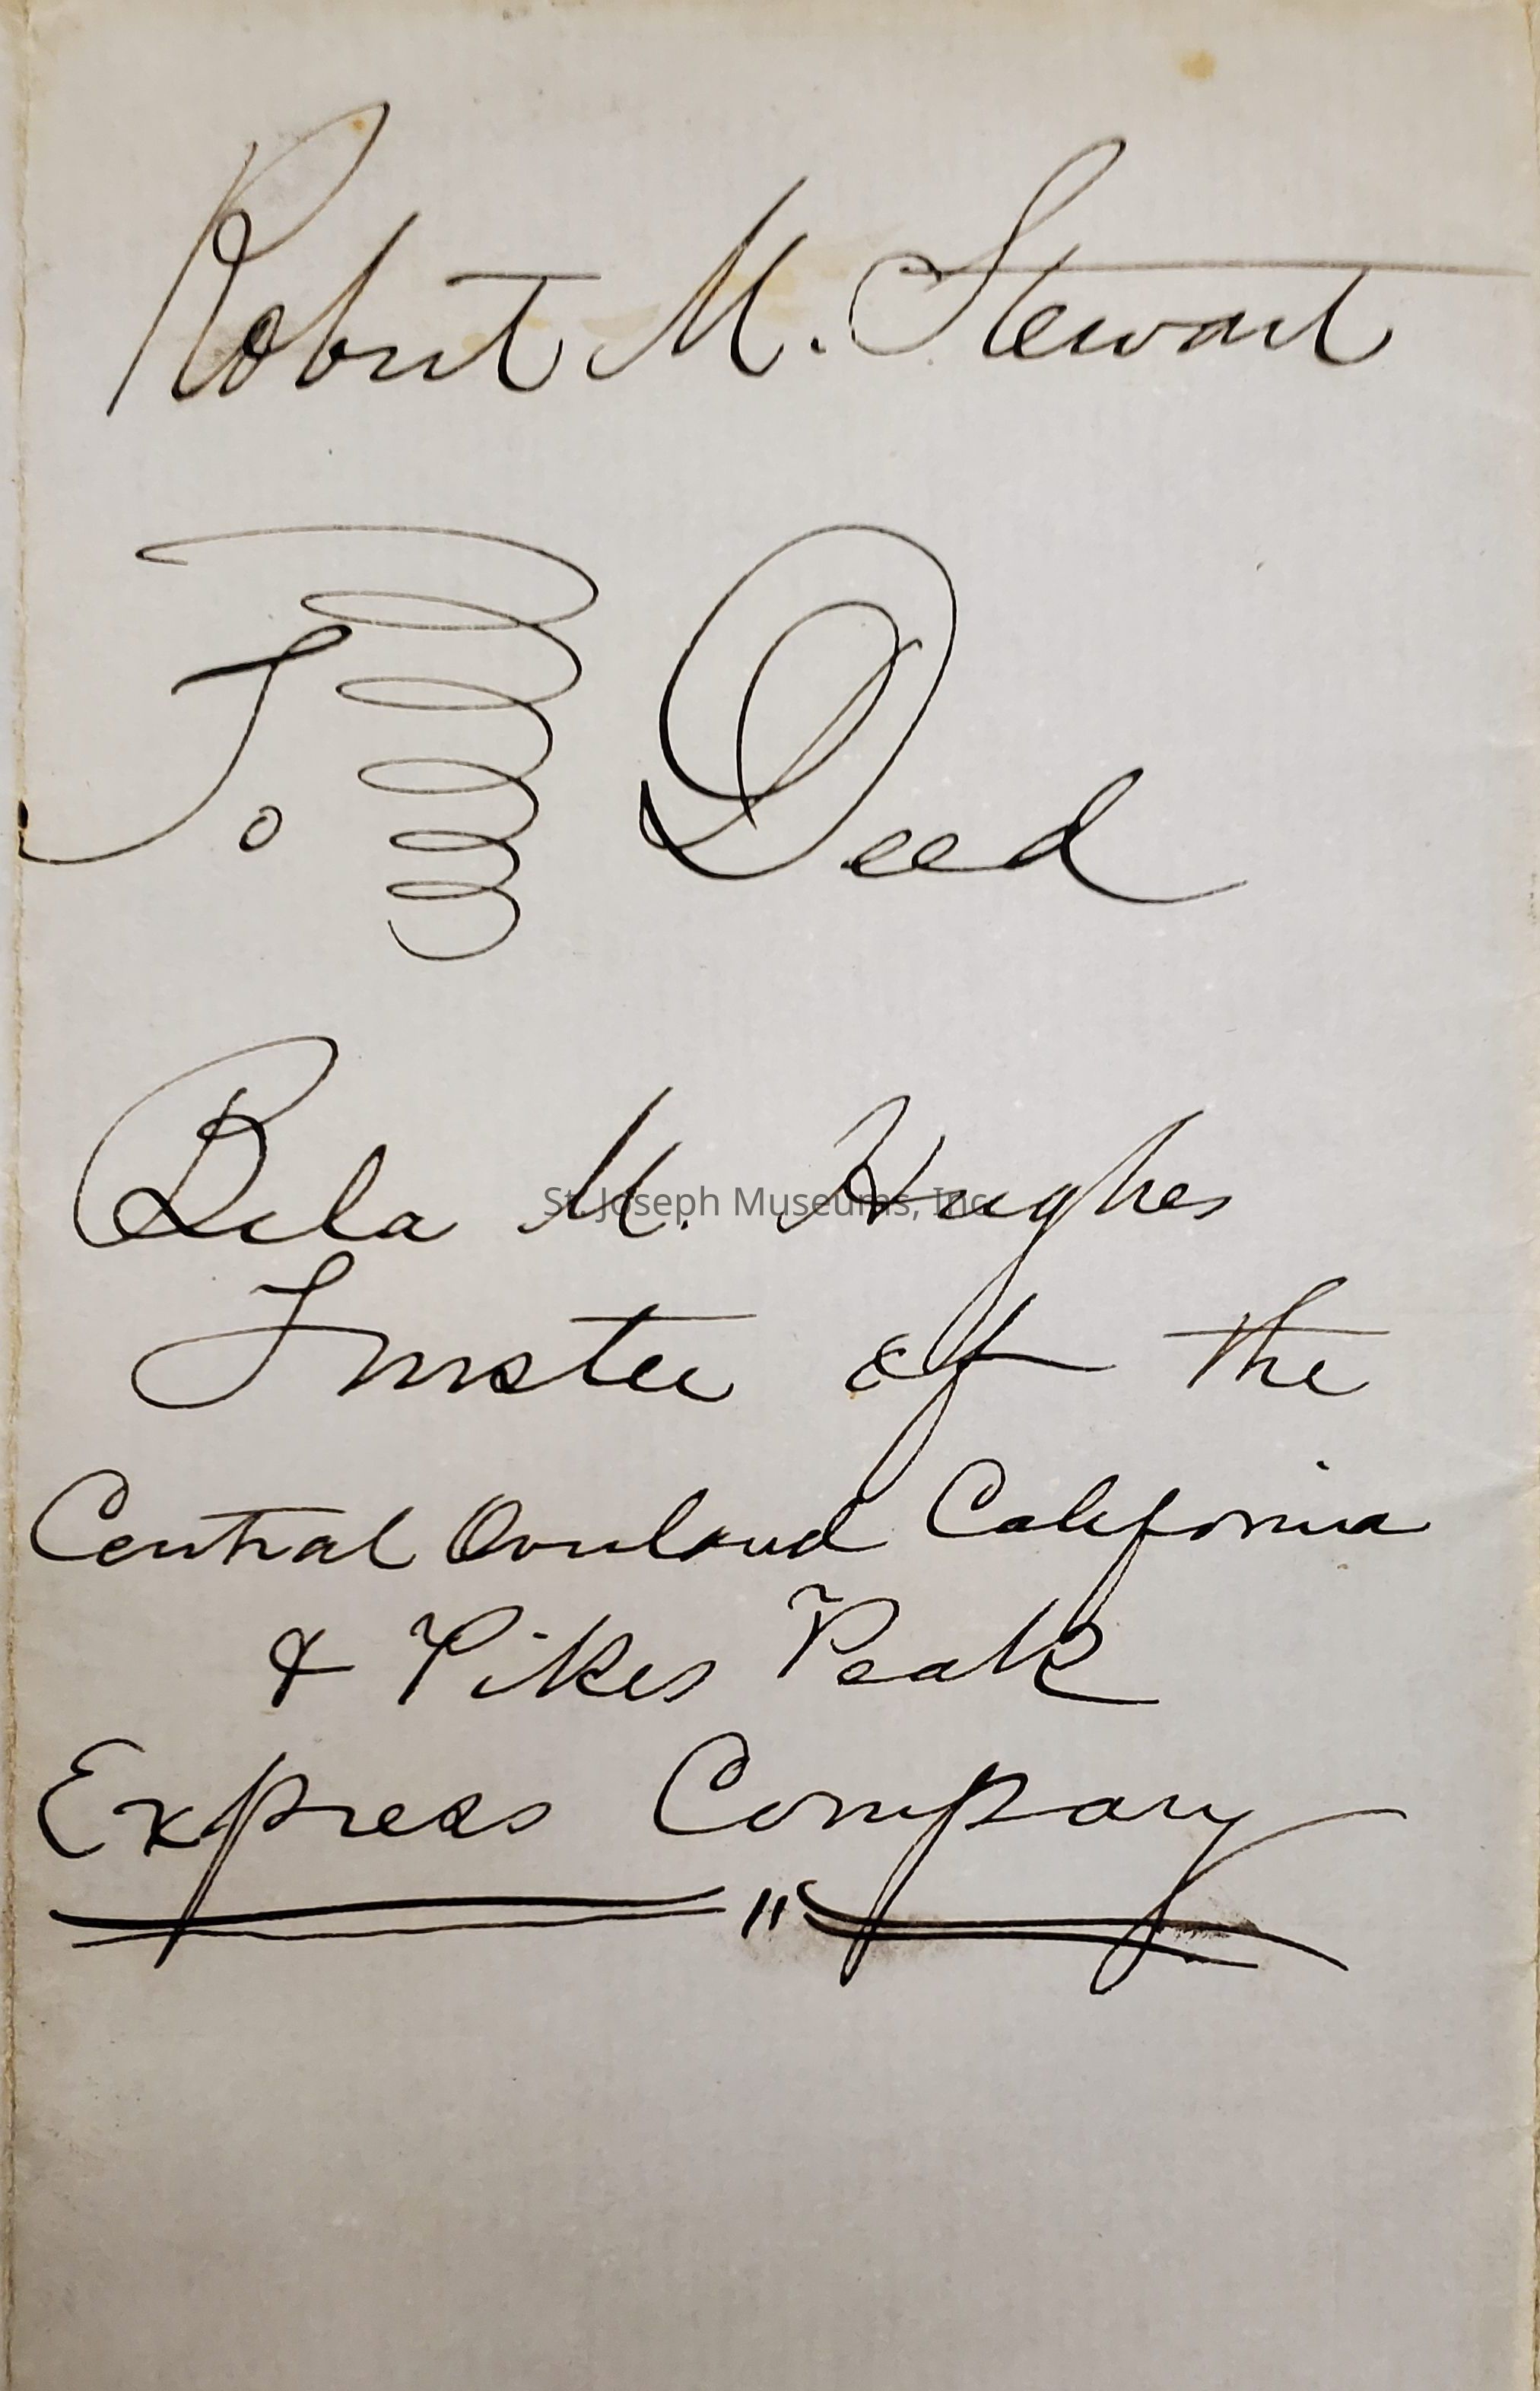 Robert M. Stewart
To Deed
Bela M. Hughes
St. Joseph Museums, Inc.
Trustee of the
Central Overland California
& Pikes Peak
Express Company